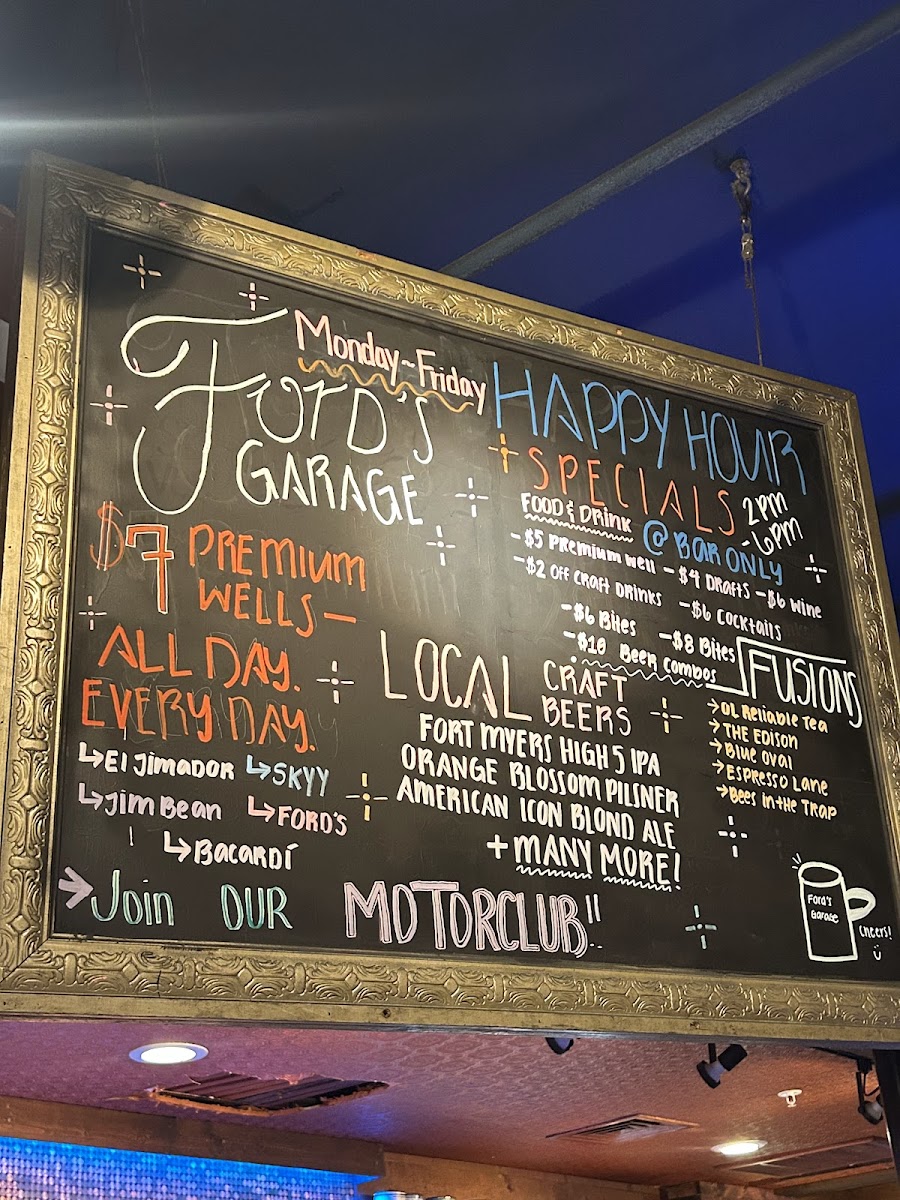 Monday~Friday
Ford's
GARAGE
HAPPY HOUR
SPECIALS
2pm
-6pm
FOOD & DRINK
@ BAR ONLY
-$5 Premium well -$4 Drafts -$6 Wine
-$2 Off Craft Drinks -$6 Cocktails
-$6 Bites -$8 Bites
-$10 Beer Combos
$7 PREMIUM
WELLS—
ALL DAY.
EVERY DAY.
El Jimador SKYY
Jim Bean FORD'S
Bacardí
LOCAL CRAFT
BEERS
FORT MYERS HIGH 5 IPA
ORANGE BLOSSOM PILSNER
AMERICAN ICON BLOND ALE
+ MANY MORE!
FUSIONS
→ OL Reliable Tea
→ THE EDISON
→ Blue Oval
→ Espresso Lane
→ Bees in the Trap
→ Join OUR MOTORCLUB"
Ford's
Garage
Cheers!